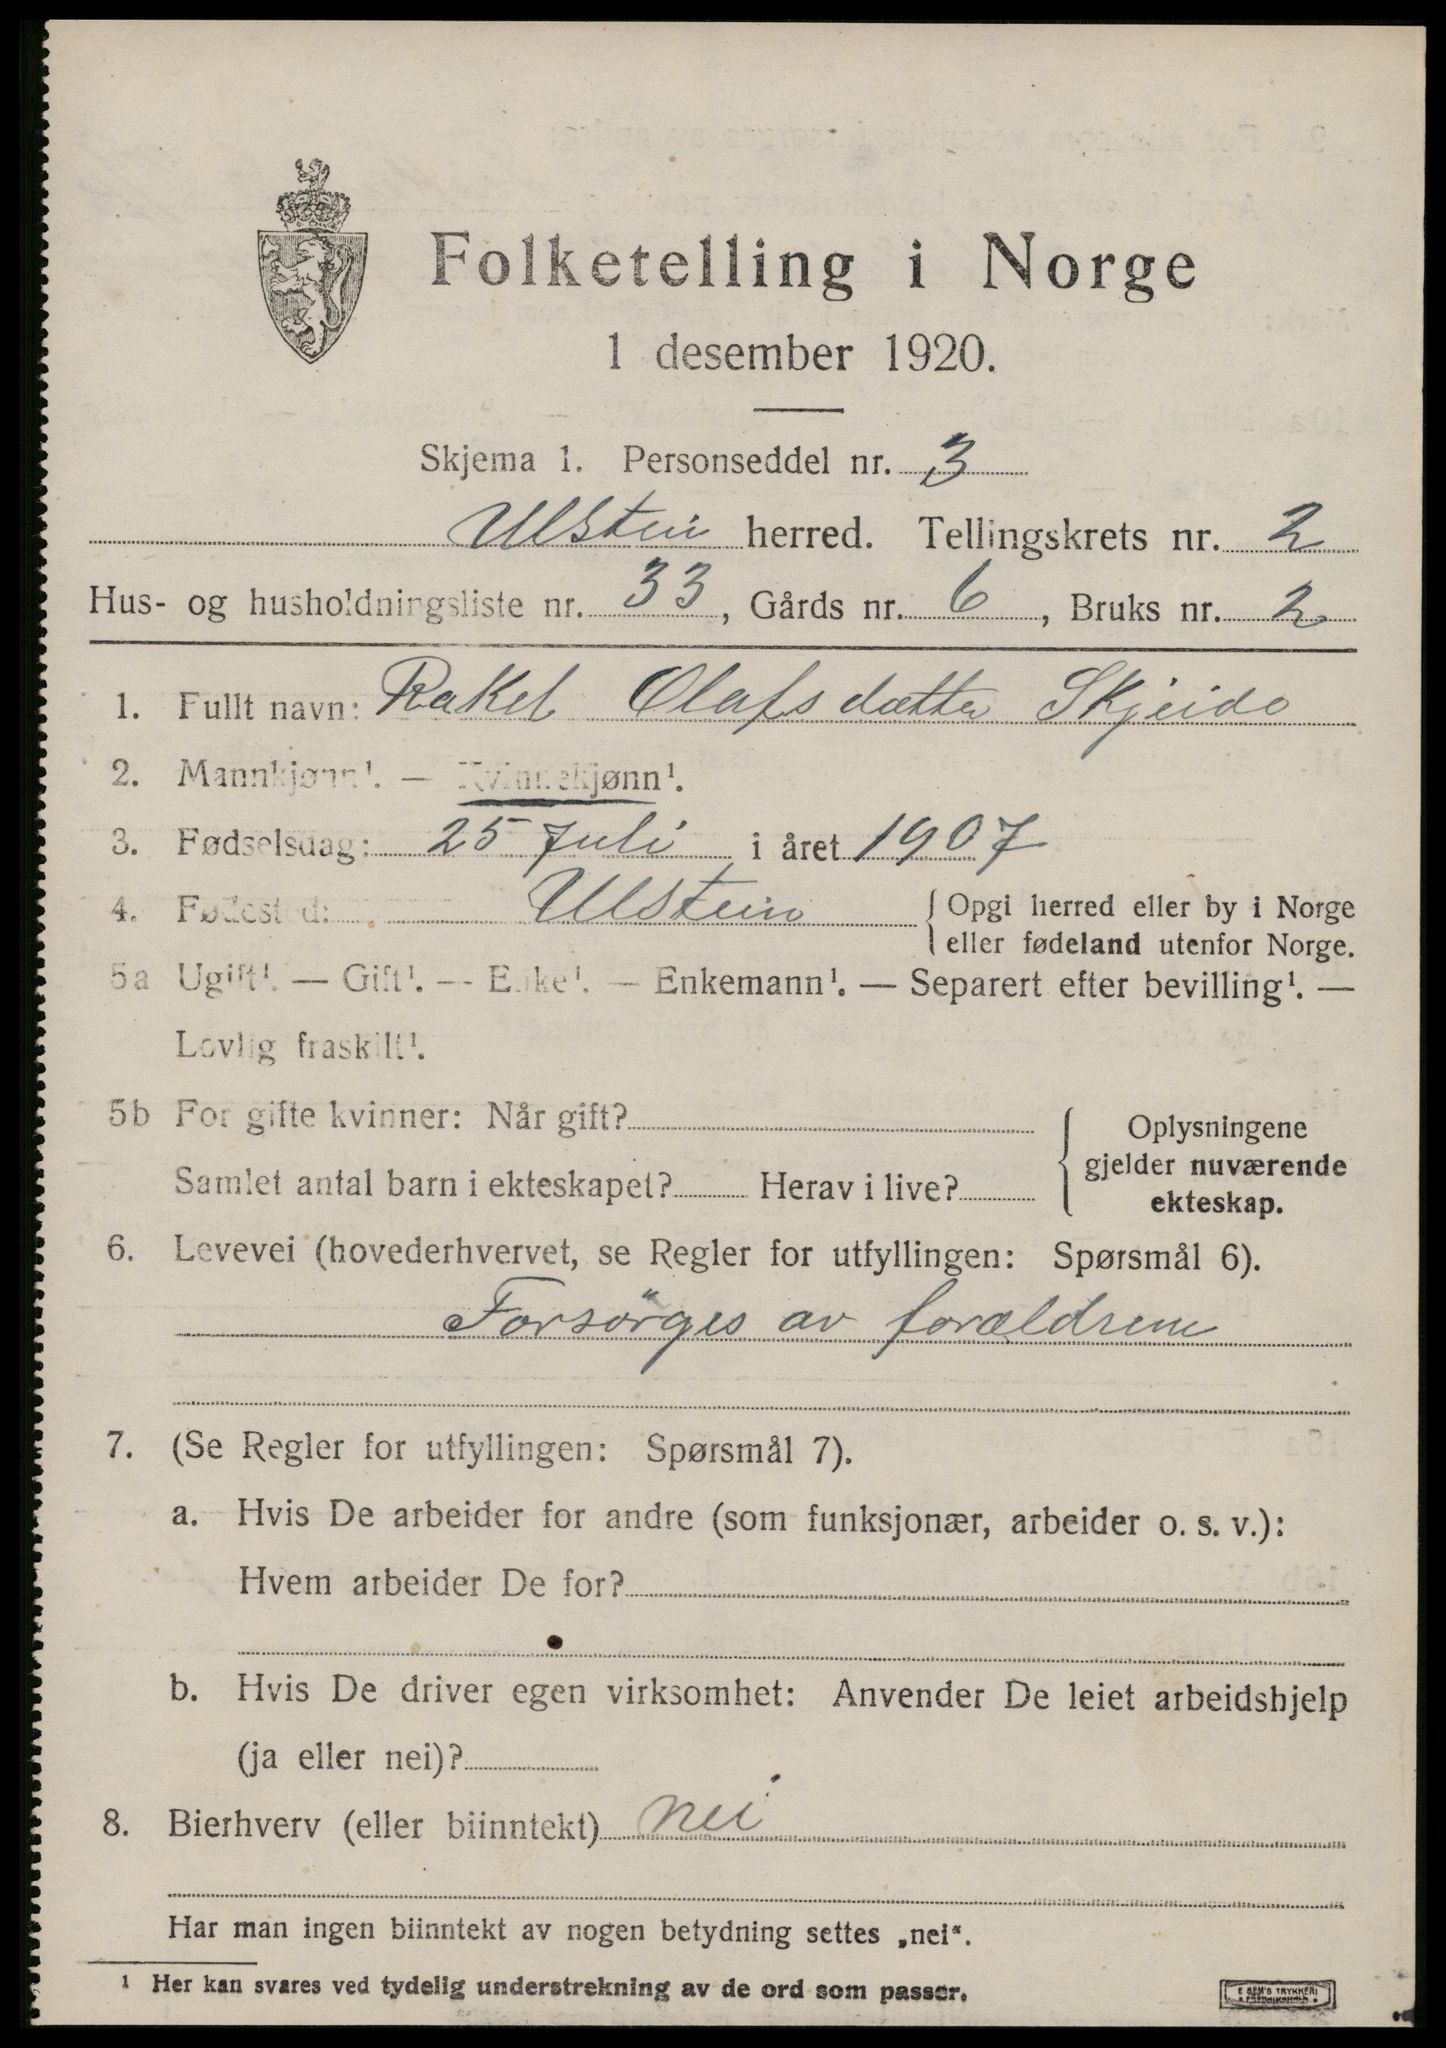 Folketelling i Norge
1 desember 1920.
Skjema 1. Personseddel nr. 3
Ulstein herred. Tellingskrets nr. 2
Hus- og husholdningsliste nr. 33, Gårds nr. 6, Bruks nr. 2
1. Fullt navn: Rakel Olafsdatter Skjeido
2. Mannkjønn¹. — Kvinnekjønn¹.
3. Fødselsdag: 25 Juli i året 1907
4. Fødested: Ulstein { Opgi herred eller by i Norge
eller fødeland utenfor Norge.
5a Ugift¹. — Gift¹. — Enke¹. — Enkemann¹. — Separert efter bevilling¹. —
Lovlig fraskilt¹.
5b For gifte kvinner: Når gift?
Samlet antal barn i ekteskapet? Herav i live?
Oplysningene
gjelder nuværende
ekteskap.
6. Levevei (hovederhvervet, se Regler for utfyllingen: Spørsmål 6).
Forsörges av forældrene
7. (Se Regler for utfyllingen: Spørsmål 7).
a. Hvis De arbeider for andre (som funksjonær, arbeider o. s. v.):
Hvem arbeider De for?
b. Hvis De driver egen virksomhet: Anvender De leiet arbeidshjelp
(ja eller nei)?
8. Bierhverv (eller biinntekt) nei
Har man ingen biinntekt av nogen betydning settes „nei“.
¹ Her kan svares ved tydelig understrekning av de ord som passer.